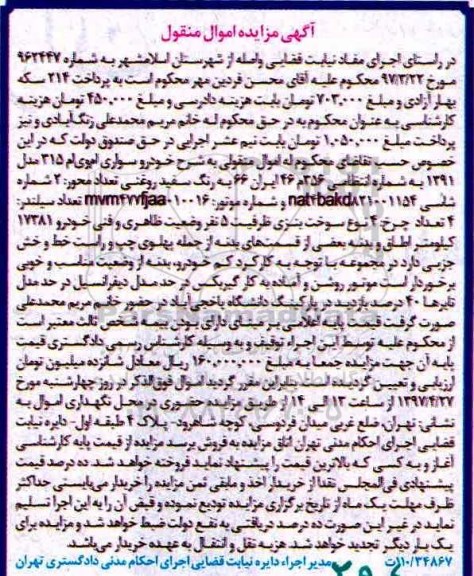 آگهی مزایده اموال منقول
در راستای اجرای مفاد نیابت قضایی واصله از شهرستان اسلامشهر به شماره ۹۶۲۴۴۷
مورخ ۹۷/۳/۲۲ محکوم علیه آقای محسن فردین مهر محکوم است به پرداخت ۲۱۴ سکه
بهار آزادی و مبلغ ۷۰۳,۰۰۰ تومان بابت هزینه دادرسی و مبلغ ۴۵۰,۰۰۰ تومان هزینه
کارشناسی به عنوان محکوم به در حق محکوم له خانم مریم محمدعلی زنگ‌آبادی و نیز
پرداخت مبلغ ۱,۰۵۰,۰۰۰ تومان بابت نیم عشر اجرایی در حق صندوق دولت که در این
خصوص حسب تقاضای محکوم له اموال منقولی به شرح خودرو سواری ام‌وی‌ام ۳۱۵ مدل
۱۳۹۱ به شماره انتظامی ۳۵۶ ۴۶ ایران ۶۶ به رنگ سفید روغنی تعداد محور: ۲ شماره
شاسی nat۴bakd۸۲۱۰۰۱۱۵۴ و شماره موتور: mvm۴۷۷fjaa۰۱۰۰۱۶ تعداد سیلندر:
۴ تعداد چرخ: ۴ نوع سوخت بنزی ظرفیت ۵ نفر وضعیت ظاهری و فنی خودرو ۱۷۳۸۱
کیلومتر اطاق و بدنه بعضی از قسمت‌های بدنه از جمله پهلوی چپ و راست خط و خش
جزیی دارد در مجموعه با توجه به کارکرد کم خودرو، بدنه از وضعیت مناسب و خوبی
برخوردار است موتور روشن و آماده به کار گیربکس در حد مدل دیفرانسیل در حد مدل
تایرها ۴۰ درصد بازدید در پارکینگ دانشگاه یاخچی‌آباد در حضور خانم مریم محمدعلی
صورت گرفت قیمت پایه اعلامی بر مبنای دارای بودن بیمه شخص ثالث معتبر است
از محکوم علیه توسط این اجراء توقیف و به وسیله کارشناس رسمی دادگستری قیمت
پایه آن جهت مزایده جمعاً به مبلغ ۱۶۰,۰۰۰,۰۰۰ ریال معادل شانزده میلیون تومان
ارزیابی و تعیین گردیده است. بنابراین مقرر گردید اموال فوق‌الذکر در روز چهارشنبه مورخ
۱۳۹۷/۴/۲۷ از ساعت ۱۳ الی ۱۴ از طریق مزایده حضوری در محل نگهداری اموال به
نشانی: تهران، ضلع غربی میدان فردوسی، کوچه شاهرود- پلاک ۴ طبقه اول- دایره نیابت
قضایی اجرای احکام مدنی تهران اتاق مزایده به فروش برسد مزایده از قیمت پایه کارشناسی
آغاز و به کسی که بالاترین قیمت را پیشنهاد نماید فروخته خواهد شد. ده درصد قیمت
پیشنهادی فی‌المجلس نقداً از خریدار اخذ و مابقی ثمن مزایده را خریدار می‌بایستی حداکثر
ظرف مهلت یک ماه از تاریخ برگزاری مزایده تودیع نموده و قبض آن را به این اجرا تسلیم
نماید در غیر این صورت ده درصد دریافتی به نفع دولت ضبط خواهد شد و مزایده برای
یک بار دیگر تجدید خواهد شد. هزینه نقل و انتقال به عهده خریدار می‌باشد.
۱۱۰/۳۴۸۶۷ت مدیر اجراء دایره نیابت قضایی اجرای احکام مدنی دادگستری تهران